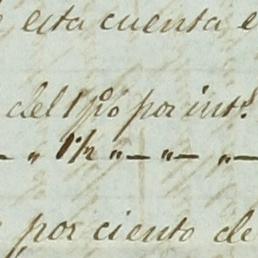 de esta cuenta e
del 1 p% por int.s
— „ 1½ „ — „ — „ —
por ciento de